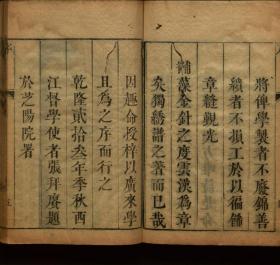 將俾學製者不廢錦善
績者不損工於以徧飾
章縫觀光
黼藻金針之度雲漢為章
矣獨綉譜之著而已哉
因趣命授梓以廣來學
且為之序而行之
乾隆貳拾叁年季秋西
江督學使者張拜賡題
於芝陽院署